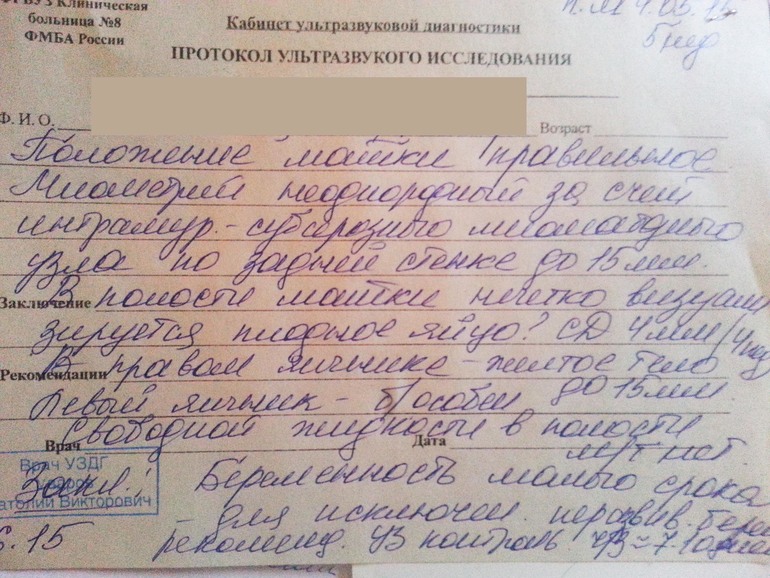 ФГБУЗ Клиническая
больница №8
ФМБА России
Кабинет ультразвуковой диагностики
5 нед
ПРОТОКОЛ УЛЬТРАЗВУКОГО ИССЛЕДОВАНИЯ
Ф. И. О.
Возраст
Положение матки правильное
Миометрий неоднородный за счет
интрамур.-субсерозного миоматозного
узла по задней стенке до 15 мм.
Заключение В полости матки нечетко визуали
зируется плодное яйцо? СД 4 мм (4 нед)
Рекомендации В правом яичнике - желтое тело
до 15 мм
Левый яичник - б/особен
Свободной жидкости в полости
Врач Дата м/т нет.
Врач УЗДГ
Анатолий Викторович
Закл: Беременность малого срока
для исключен. неразвив. берем
.15 рекоменд. УЗ контроль ч/з 7-10 дней